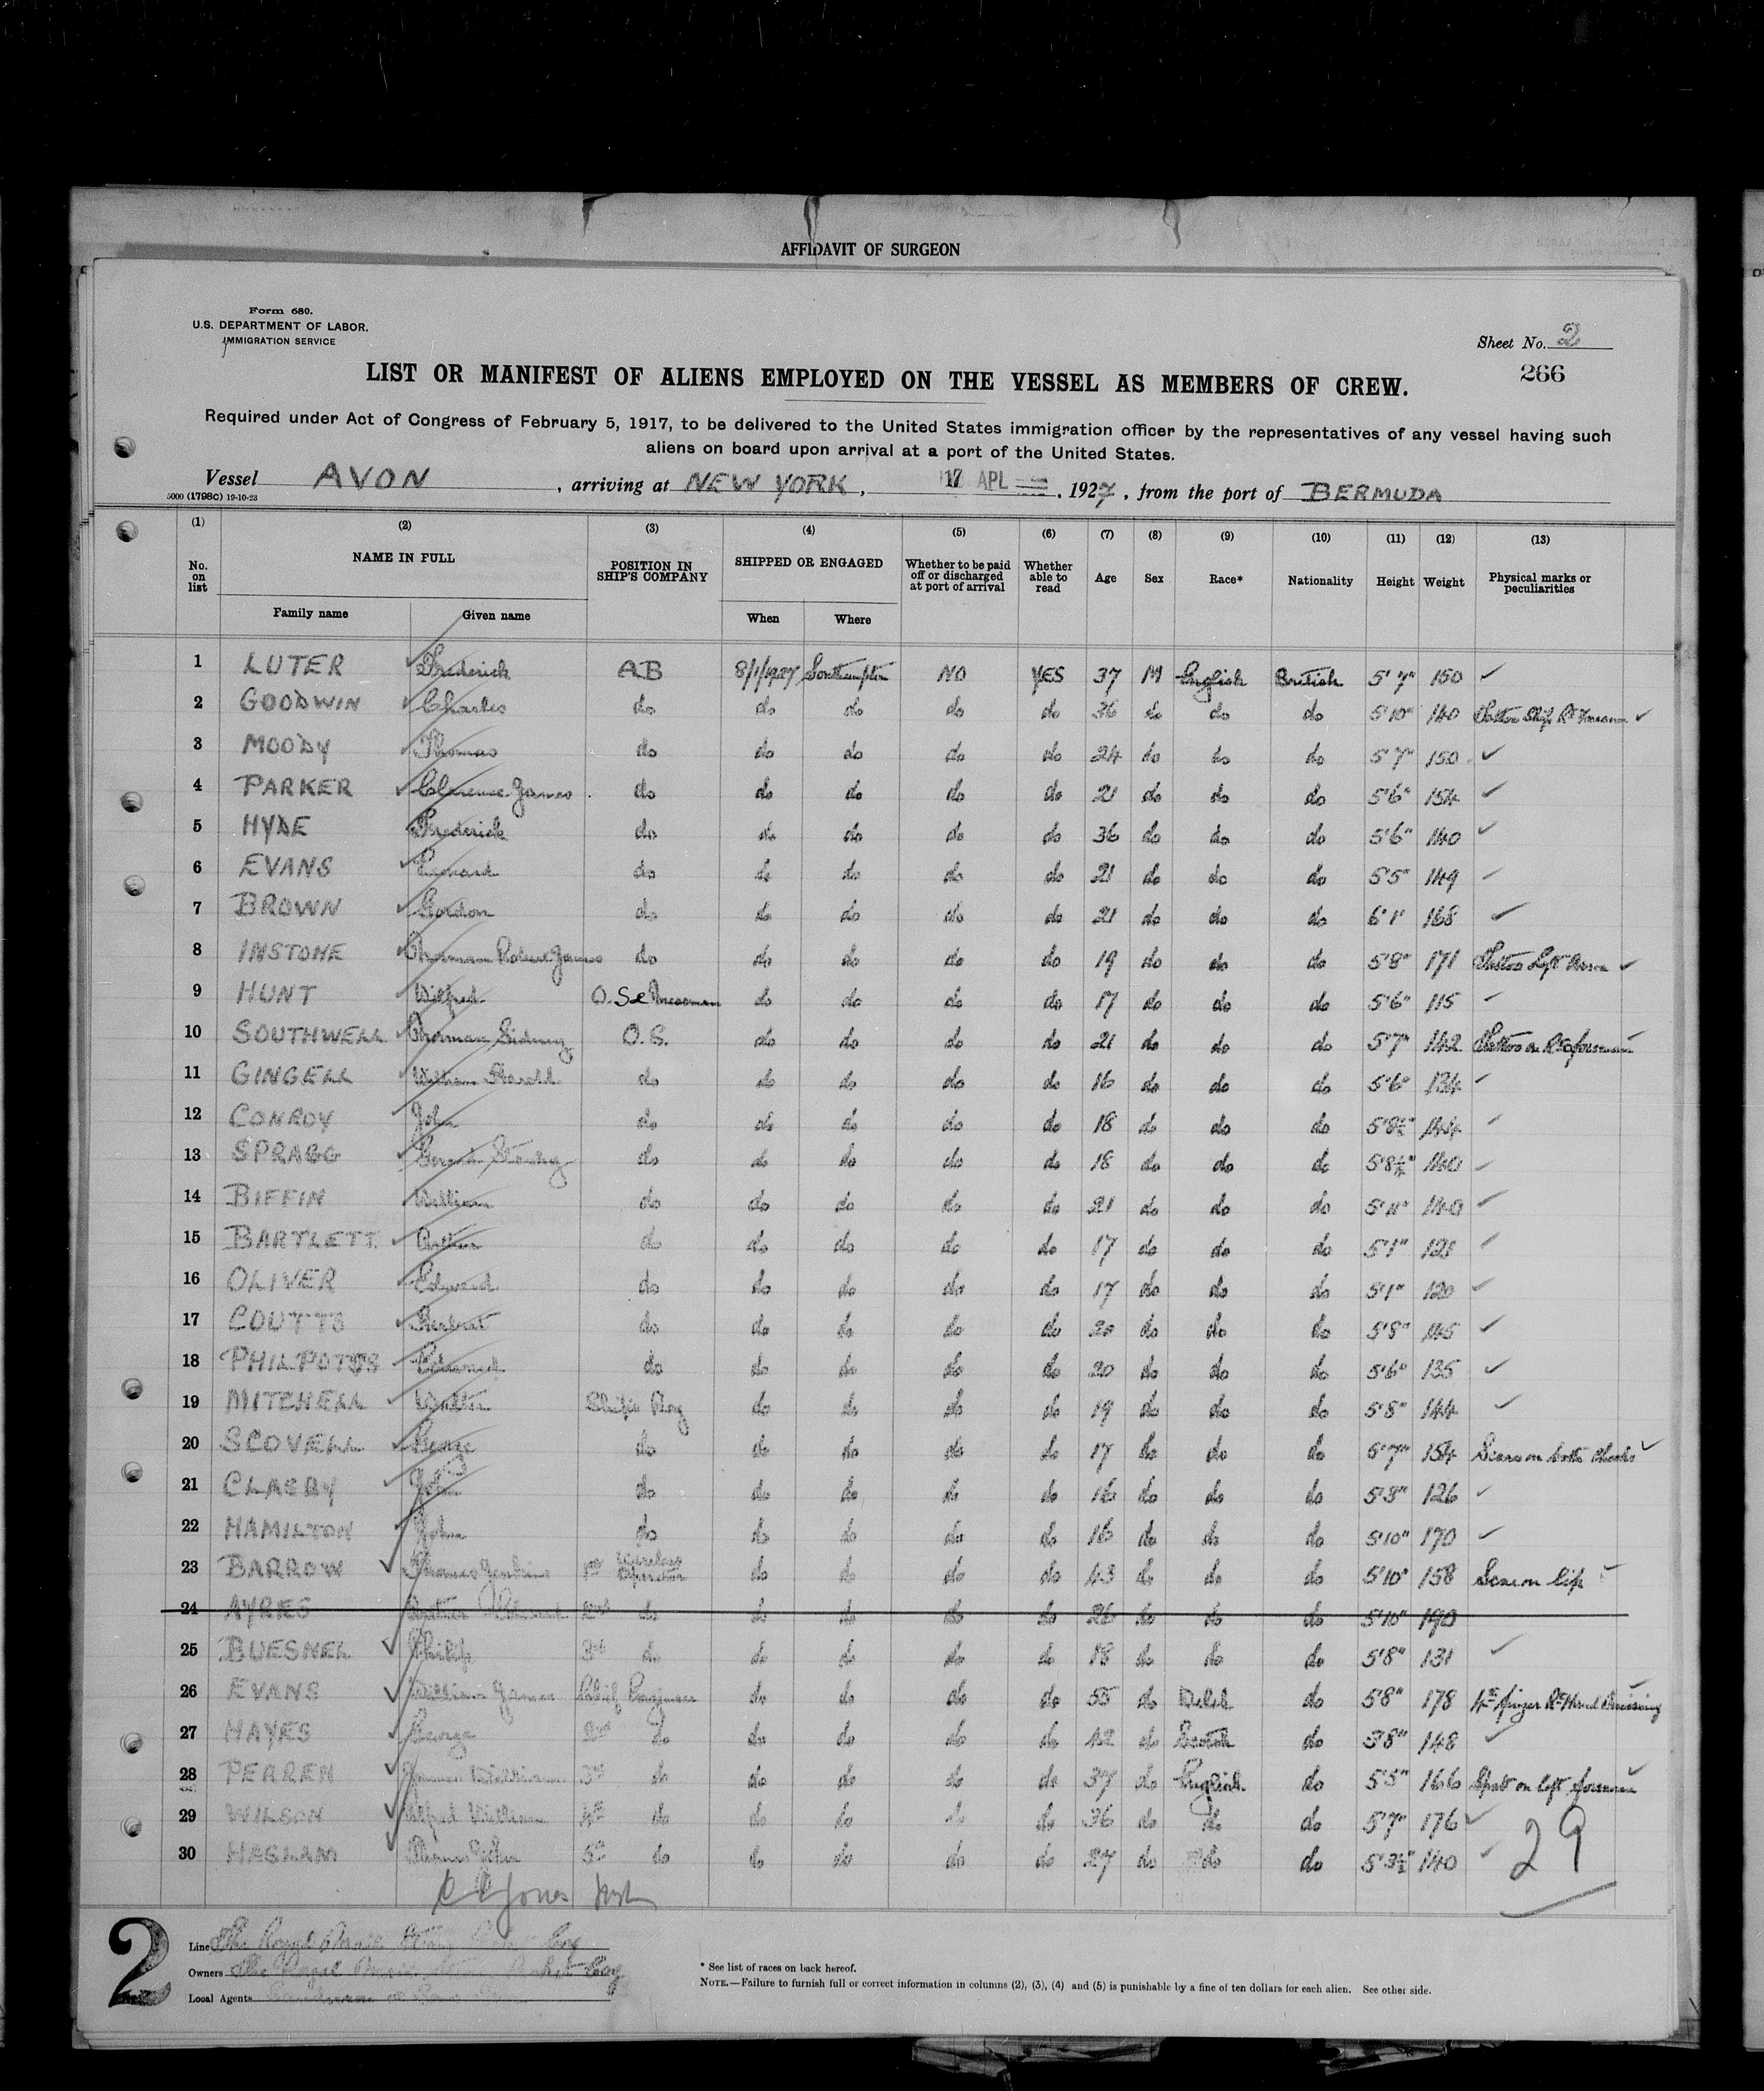 AFFIDAVIT OF SURGEON
Form 680.
U.S. DEPARTMENT OF LABOR.
IMMIGRATION SERVICE
Sheet No. 2
266
LIST OR MANIFEST OF ALIENS EMPLOYED ON THE VESSEL AS MEMBERS OF CREW.
Required under Act of Congress of February 5, 1917, to be delivered to the United States immigration officer by the representatives of any vessel having such
aliens on board upon arrival at a port of the United States.
Vessel AVON, arriving at NEW YORK, 17 APL 1927, from the port of BERMUDA
5000 (1798C) 19-10-23
(1) (2) (3) (4) (5) (6) (7) (8) (9) (10) (11) (12) (13)
No. on list NAME IN FULL POSITION IN SHIP'S COMPANY SHIPPED OR ENGAGED Whether to be paid off or discharged at port of arrival Whether able to read Age Sex Race* Nationality Height Weight Physical marks or peculiarities
Family name Given name When Where
1 LUTER Frederick AB 8/1/1927 Southampton NO YES 37 M English British 5'7" 150 ✓
2 GOODWIN Charles do do do do do 36 do do do 5'10" 140 ✓
3 MOODY Thomas do do do do do 24 do do do 5'7" 150 ✓
4 PARKER Clarence James do do do do do 21 do do do 5'6" 154 ✓
5 HYDE Frederick do do do do do 36 do do do 5'6" 140 ✓
6 EVANS do do do do do 21 do do do 5'5" 149 ✓
7 BROWN Gordon do do do do do 21 do do do 6'1" 168 ✓
8 INSTONE Norman Robert James do do do do do 19 do do do 5'8" 171 Tattoo Left Arm ✓
9 HUNT Wilfred O.S. do do do do 17 do do do 5'6" 115 ✓
10 SOUTHWELL Norman Sidney O.S. do do do do 21 do do do 5'7" 142 Tattoo on Rt forearm
11 GINGELL William Harold do do do do do 16 do do do 5'6" 134 ✓
12 CONROY John do do do do do 18 do do do 5'8½" 144 ✓
13 SPRAGG Stanley do do do do do 18 do do do 5'8½" 140 ✓
14 BIFFIN William do do do do do 21 do do do 5'11" 140 ✓
15 BARTLETT Arthur do do do do do 17 do do do 5'1" 121 ✓
16 OLIVER Edward do do do do do 17 do do do 5'1" 120 ✓
17 COUTTS Herbert do do do do do 20 do do do 5'8" 145 ✓
18 PHILPOTTS Edward do do do do do 20 do do do 5'6" 135 ✓
19 MITCHELL Walter Ship's Boy do do do do 19 do do do 5'8" 144 ✓
20 SCOVELL George do do do do do 17 do do do 5'7" 154 Scars on both cheeks ✓
21 CLASBY John do do do do do 16 do do do 5'3" 126 ✓
22 HAMILTON John do do do do do 16 do do do 5'10" 170 ✓
23 BARROW Thomas 1st Wireless Operator do do do do 43 do do do 5'10" 158 Scar on lip
24 AYRES Arthur Edward 2nd do do do do do 26 do do do 5'10" 190
25 BUESNEL Philip 3rd do do do do do 18 do do do 5'8" 131 ✓
26 EVANS William James Chief Engineer do do do do 55 do Welsh do 5'8" 178 4th finger Rt Hand Missing
27 HAYES George 2nd do do do do do 42 do Scotch do 5'8" 148 ✓
28 PERREN James William 3rd do do do do do 37 do English do 5'5" 166 Spot on left forearm
29 WILSON Alfred William 4th do do do do do 36 do do do 5'7" 176 ✓
30 HASLAM Thomas John 5th do do do do do 27 do do do 5'3½" 140 ✓
29
Jones
2
Line The Royal Mail Steam Packet Coy
Owners The Royal Mail Steam Packet Coy
Local Agents Sanderson & Son
* See list of races on back hereof.
NOTE.—Failure to furnish full or correct information in columns (2), (3), (4) and (5) is punishable by a fine of ten dollars for each alien. See other side.